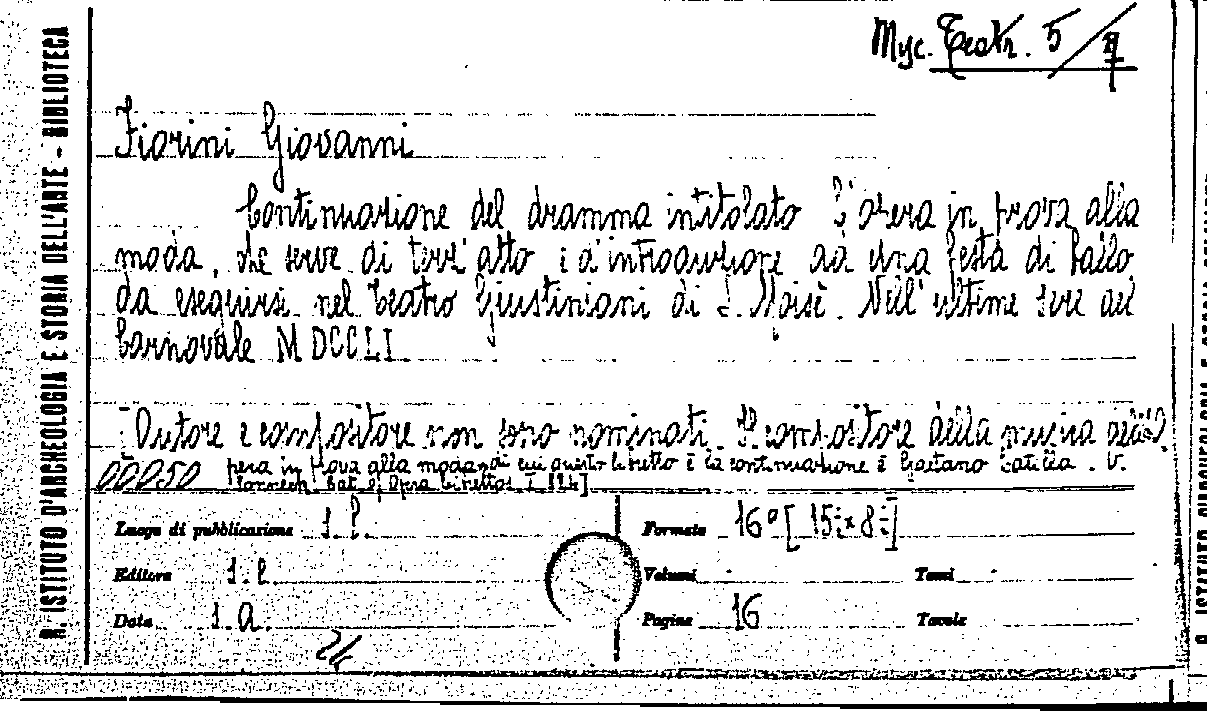 R. ISTITUTO D'ARCHEOLOGIA E STORIA DELL'ARTE - BIBLIOTECA
Myc. Teatr. 5/7
Fiorini Giovanni
Continuazione del dramma intitolato L'opera in prova alla
moda, che serve di terz'atto e d'introduzione ad una festa di ballo
da eseguirsi nel Teatro Giustiniani di S. Moisè. Nell'ultime sere del
Carnovale MDCCLI
[Autore e compositore non sono nominati. Il compositore della musica dell'O
pera in prova alla moda, di cui questo libretto è la continuazione è Gaetano Latilla. V.
Sonneck. Cat. of Opera Librettos I 824]
00250
Luogo di pubblicazione s.l.
Formato 16° [15 x 8]
Editore s.e.
Volumi
Tomi
Data s.a.
Pagine 16
Tavole